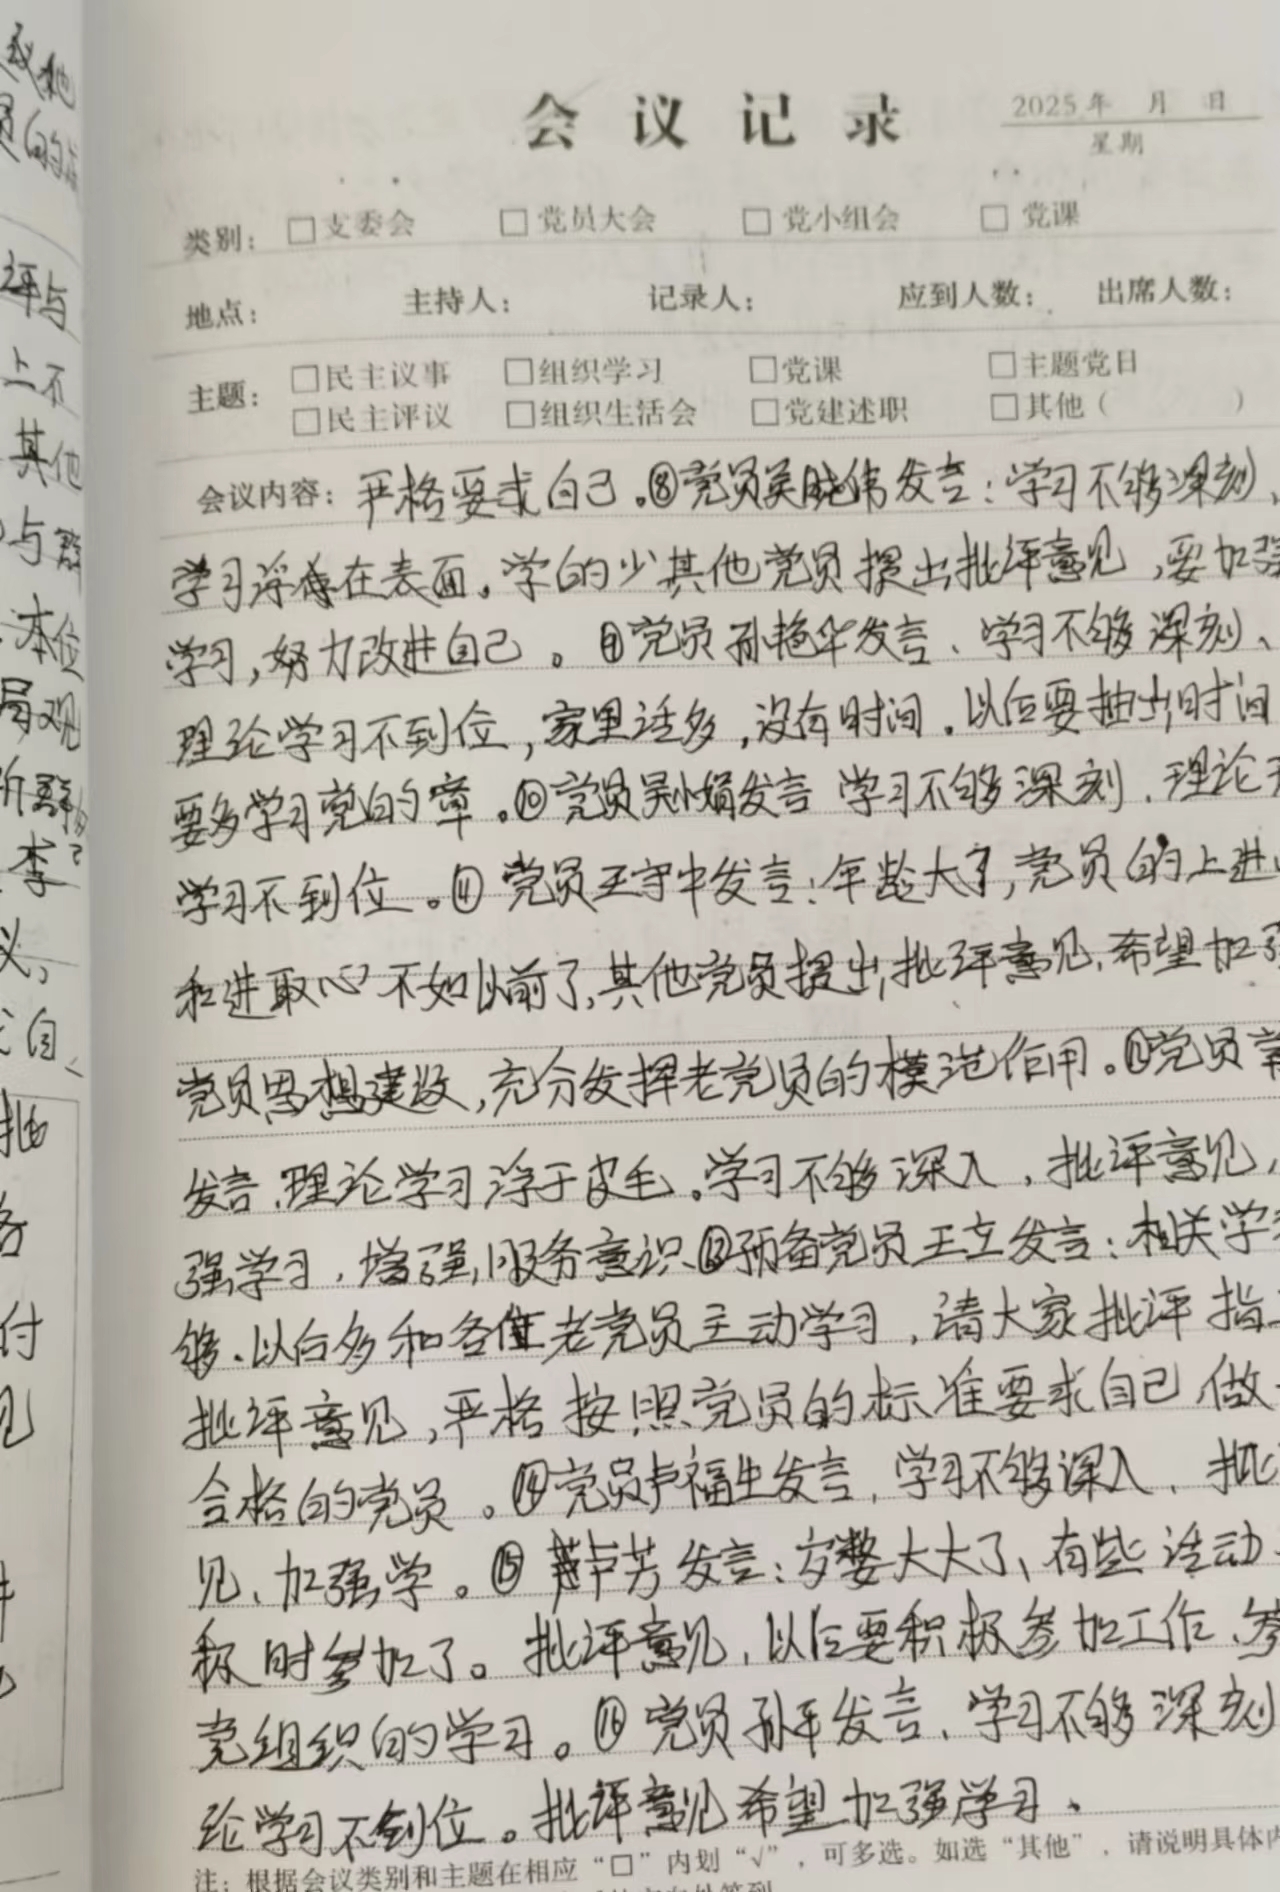 会议记录
2025年 月 日
星期
类别： □支委会 □党员大会 □党小组会 □党课
地点： 主持人： 记录人： 应到人数： 出席人数：
主题： □民主议事 □组织学习 □党课 □主题党日
□民主评议 □组织生活会 □党建述职 □其他（ ）
会议内容：严格要求自己。⑧党员吴晓伟发言：学习不够深刻、
学习浮在表面。学的少其他党员提出批评意见，要加强
学习，努力改进自己。⑨党员孙艳华发言、学习不够深刻、
理论学习不到位，家里活多，没有时间。以后要抽出时间
要多学习党的章。⑩党员吴小娟发言 学习不够深刻．理论
学习不到位。⑪党员王守中发言：年龄大了，党员的上进
和进取心不如以前了，其他党员提出批评意见．希望加强
党员思想建设，充分发挥老党员的模范作用。⑫党员
发言．理论学习浮于皮毛。学习不够深入．批评意见，
强学习．增强服务意识．⑬预备党员王立发言：相关学
够．以后多和各位老党员主动学习，请大家批评指
批评意见，严格按照党员的标准要求自己，做
合格的党员。⑭党员卢福生发言，学习不够深入．批
见、加强学。⑮卢芳发言：岁数大大了、有些活动
极时参加了。批评意见，以后要积极参加工作、参
党组织的学习。⑯党员孙平发言、学习不够深刻
论学习不到位。批评意见希望加强学习、
注：根据会议类别和主题在相应“□”内划“√”，可多选。如选“其他”，请说明具体内
议他
员的
评与
上不
其他
与群
本位
局观
所群
李
义，
自
批
各
付
见